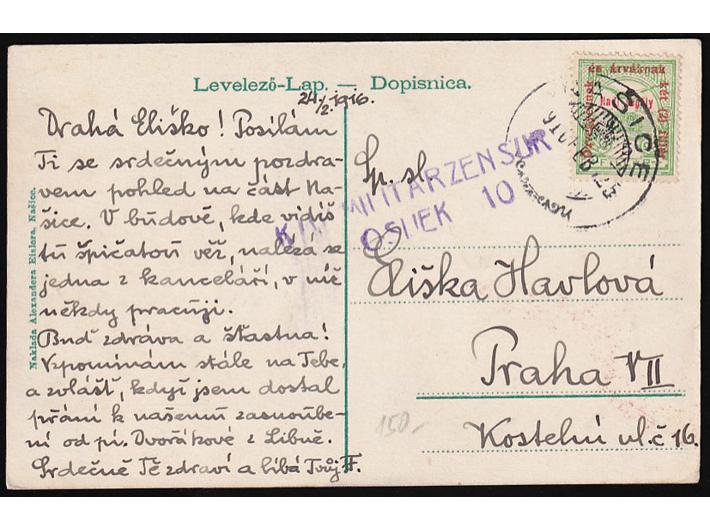 Levelező-Lap. — Dopisnica.
24/2. 1916.
Drahá Eliško! Posílám
Ti se srdečným pozdra-
vem pohled na část Na-
šice. V budově, kde vidíš
tu špičatou věž, nalézá se
jedna z kanceláří, v níž
někdy pracuji.
Buď zdráva a šťastna!
Vzpomínám stále na Tebe,
a zvlášť, když jsem dostal
přání k našemu zasnoube-
ní od pí. Dvořákové z Libně.
Srdečně Tě zdraví a líbá Tvůj F.
Naklada Alexandera Eislera, Našice.
MILITÄRZENSUR
OSIJEK 10
Sp. sl.
Eliška Havlová
Praha VII
Kostelní ul. č 16.
150,-
és árváinak
két (2) fillér
NAŠICE
916 FEB 25